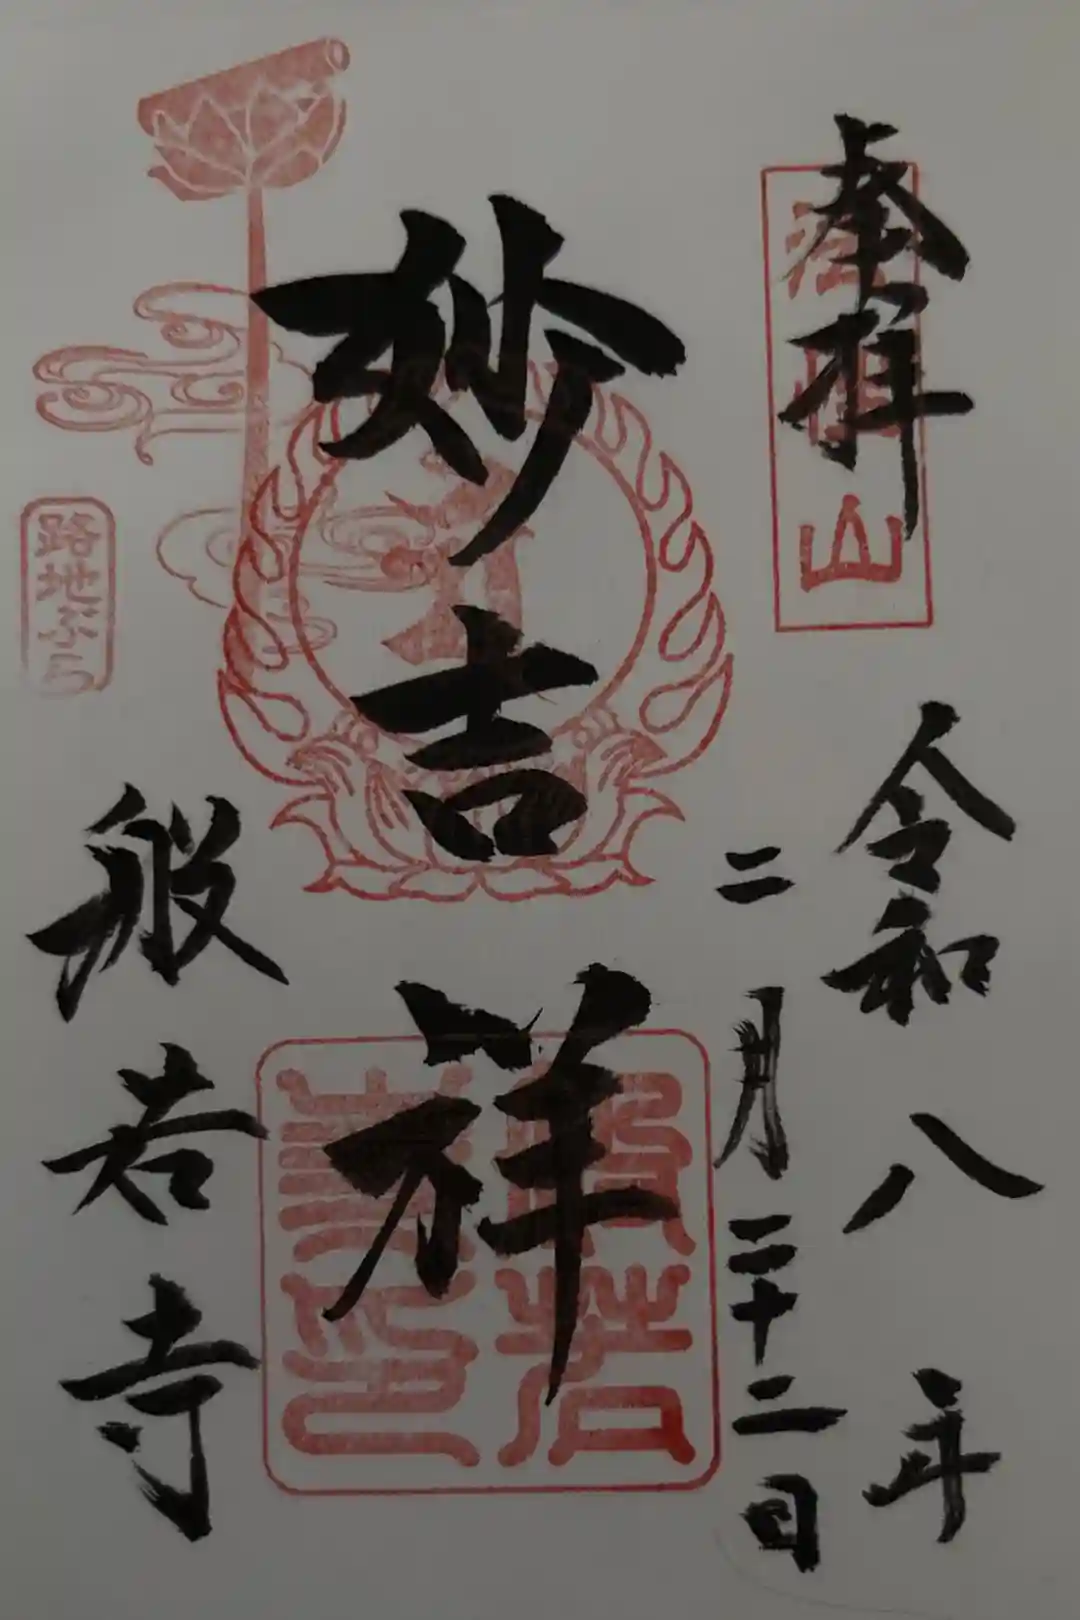 奉拝
山
令和八年
二月二十二日
妙吉祥
般若
般若寺
路地ぶら